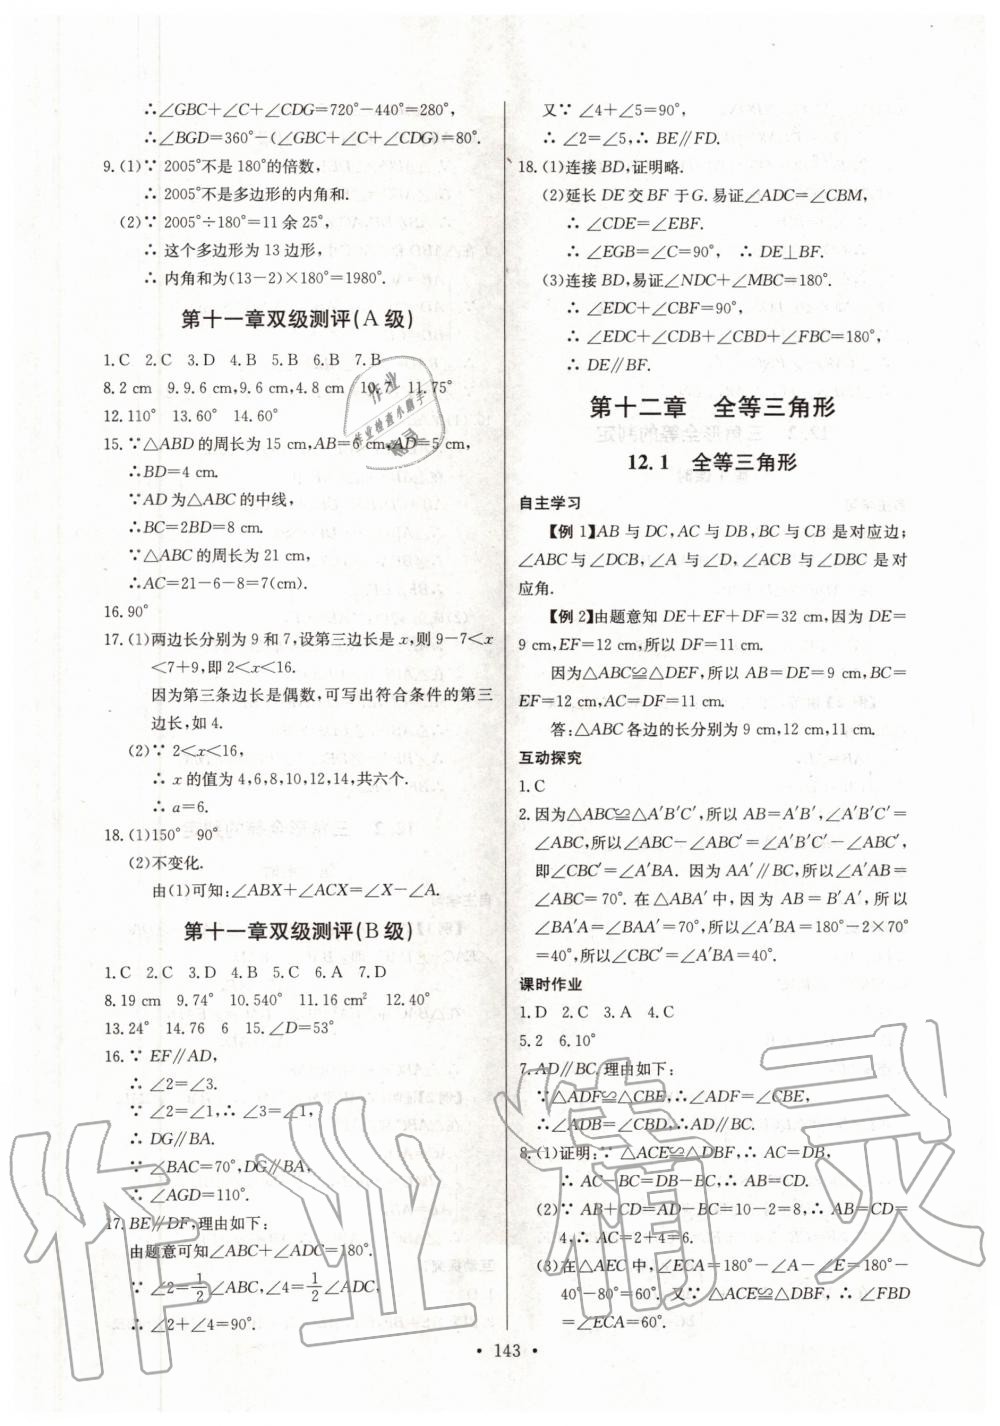 ∴∠GBC+∠C+∠CDG=720°−440°=280°,
∴∠BGD=360°−(∠GBC+∠C+∠CDG)=80°.
9.(1)∵ 2005°不是180°的倍数,
∴ 2005°不是多边形的内角和.
(2)∵ 2005°÷180°=11 余 25°,
∴ 这个多边形为 13 边形,
∴ 内角和为(13−2)×180°=1980°.
第十一章双级测评(A 级)
1.C 2.C 3.D 4.B 5.B 6.B 7.B
8.2 cm 9.9.6 cm,9.6 cm,4.8 cm 10.7 11.75°
12.110° 13.60° 14.60°
15.∵△ABD 的周长为 15 cm,AB=6 cm,AD=5 cm,
∴BD=4 cm.
∵AD 为△ABC 的中线,
∴BC=2BD=8 cm.
∵△ABC 的周长为 21 cm,
∴AC=21−6−8=7(cm).
16.90°
17.(1)两边长分别为 9 和 7,设第三边长是 x,则 9−7<x
<7+9,即 2<x<16.
因为第三条边长是偶数,可写出符合条件的第三
边长,如 4.
(2)∵ 2<x<16,
∴ x 的值为 4,6,8,10,12,14,共六个.
∴ a=6.
18.(1)150° 90°
(2)不变化.
由(1)可知:∠ABX+∠ACX=∠X−∠A.
第十一章双级测评(B 级)
1.C 2.C 3.D 4.B 5.C 6.A 7.D
8.19 cm 9.74° 10.540° 11.16 cm² 12.40°
13.24° 14.76 6 15.∠D=53°
16.∵ EF∥AD,
∴ ∠2=∠3.
∵ ∠2=∠1,∴ ∠3=∠1,
∴ DG∥BA.
∵ ∠BAC=70°,DG∥BA,
∴ ∠AGD=110°.
17.BE∥DF,理由如下:
由题意可知∠ABC+∠ADC=180°.
∵ ∠2=1/2∠ABC,∠4=1/2∠ADC,
∴ ∠2+∠4=90°.
又∵ ∠4+∠5=90°,
∴ ∠2=∠5,∴ BE∥FD.
18.(1)连接 BD,证明略.
(2)延长 DE 交 BF 于 G.易证∠ADC=∠CBM,
∴ ∠CDE=∠EBF.
∴ ∠EGB=∠C=90°, ∴ DE⊥BF.
(3)连接 BD,易证∠NDC+∠MBC=180°.
∴ ∠EDC+∠CBF=90°,
∴ ∠EDC+∠CDB+∠CBD+∠FBC=180°,
∴ DE∥BF.
第十二章 全等三角形
12.1 全等三角形
自主学习
【例 1】AB 与 DC,AC 与 DB,BC 与 CB 是对应边;
∠ABC 与∠DCB,∠A 与∠D,∠ACB 与∠DBC 是对
应角.
【例 2】由题意知 DE+EF+DF=32 cm,因为 DE=
9 cm,EF=12 cm,所以 DF=11 cm.
因为△ABC≌△DEF,所以 AB=DE=9 cm,BC=
EF=12 cm,AC=DF=11 cm.
答:△ABC 各边的长分别为 9 cm,12 cm,11 cm.
互动探究
1.C
2.因为△ABC≌△A′B′C′,所以 AB=A′B′,∠A′B′C′=
∠ABC,所以∠ABC−∠ABC′=∠A′B′C′−∠ABC′,
即∠CBC′=∠A′BA. 因为 AA′∥BC,所以∠A′AB=
∠ABC=70°. 在∠ABA′中,因为 AB=B′A′,所以
∠BA′A=∠BAA′=70°,所以∠A′BA=180°−2×70°
=40°,所以∠CBC′=∠A′BA=40°.
课时作业
1.D 2.C 3.A 4.C
5.2 6.10°
7.AD∥BC.理由如下:
∵△ADF≌△CBE,∴∠ADF=∠CBE,
∴∠ADB=∠CBD,∴AD∥BC.
8.(1)证明:∵ △ACE≌△DBF,∴ AC=DB,
∴ AC−BC=DB−BC,∴ AB=CD.
(2)∵ AB+CD=AD−BC=10−2=8,∴ AB=CD=
4,∴ AC=2+4=6.
(3)在△AEC 中,∠ECA=180°−∠A−∠E=180°−
40°−80°=60°. 又∵ △ACE≌△DBF,∴ ∠FBD
=∠ECA=60°.
• 143 •
作业精灵